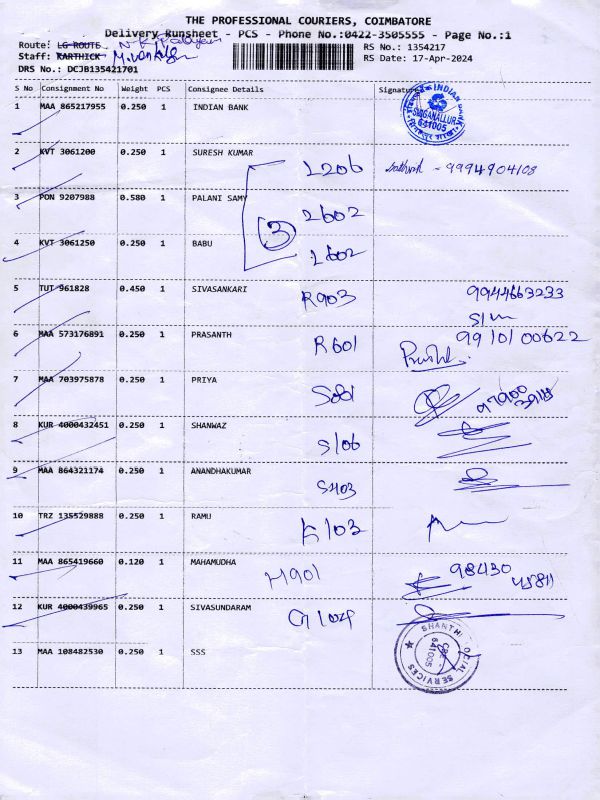 THE PROFESSIONAL COURIERS, COIMBATORE
Delivery Runsheet - PCS - Phone No.:0422-3505555 - Page No.:1
Route: LG ROUTE
RS No.: 1354217
Staff: KARTHICK
RS Date: 17-Apr-2024
DRS No.: DCJB135421701
S No Consignment No Weight PCS Consignee Details Signature
1 MAA 865217955 0.250 1 INDIAN BANK
INDIAN BANK SINGANALLUR 641005
2 KVT 3061200 0.250 1 SURESH KUMAR L206 - 9994904108
3 PON 9207988 0.580 1 PALANI SAMY 2602
3
4 KVT 3061250 0.250 1 BABU 2602
5 TUT 961828 0.450 1 SIVASANKARI R903 9944663233
6 MAA 573176891 0.250 1 PRASANTH R601 9910100622
7 MAA 703975878 0.250 1 PRIYA S081 97900
8 KUR 4000432451 0.250 1 SHANWAZ S106
9 MAA 864321174 0.250 1 ANANDHAKUMAR S403
10 TRZ 135529888 0.250 1 RAMU K103
11 MAA 865419660 0.120 1 MAHAMUDHA H901 98430
12 KUR 4000439965 0.250 1 SIVASUNDARAM G1004
13 MAA 108482530 0.250 1 SSS
SHANTHI SOCIAL SERVICES CBE - 641005